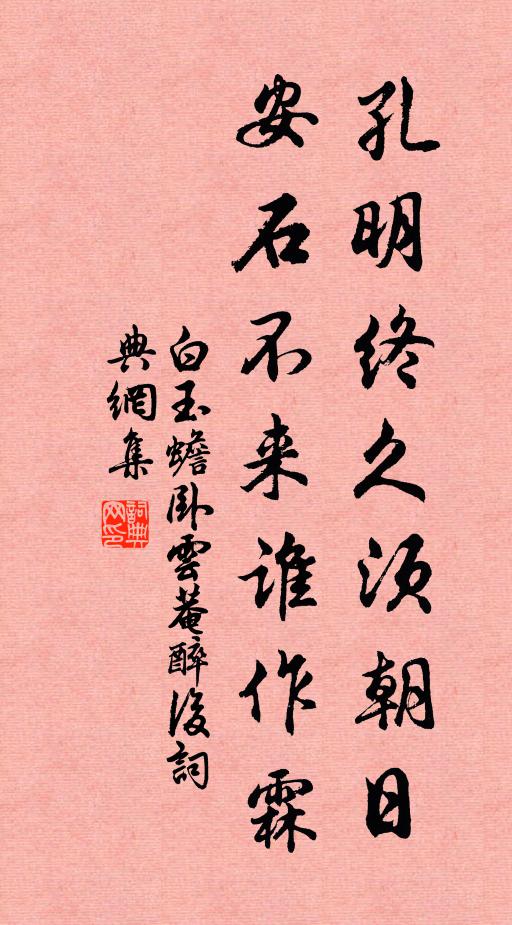 孔明终久须朝日
安石不来谁作霖
白玉蟾卧雲菴醉後詞
典網集
詞典網印